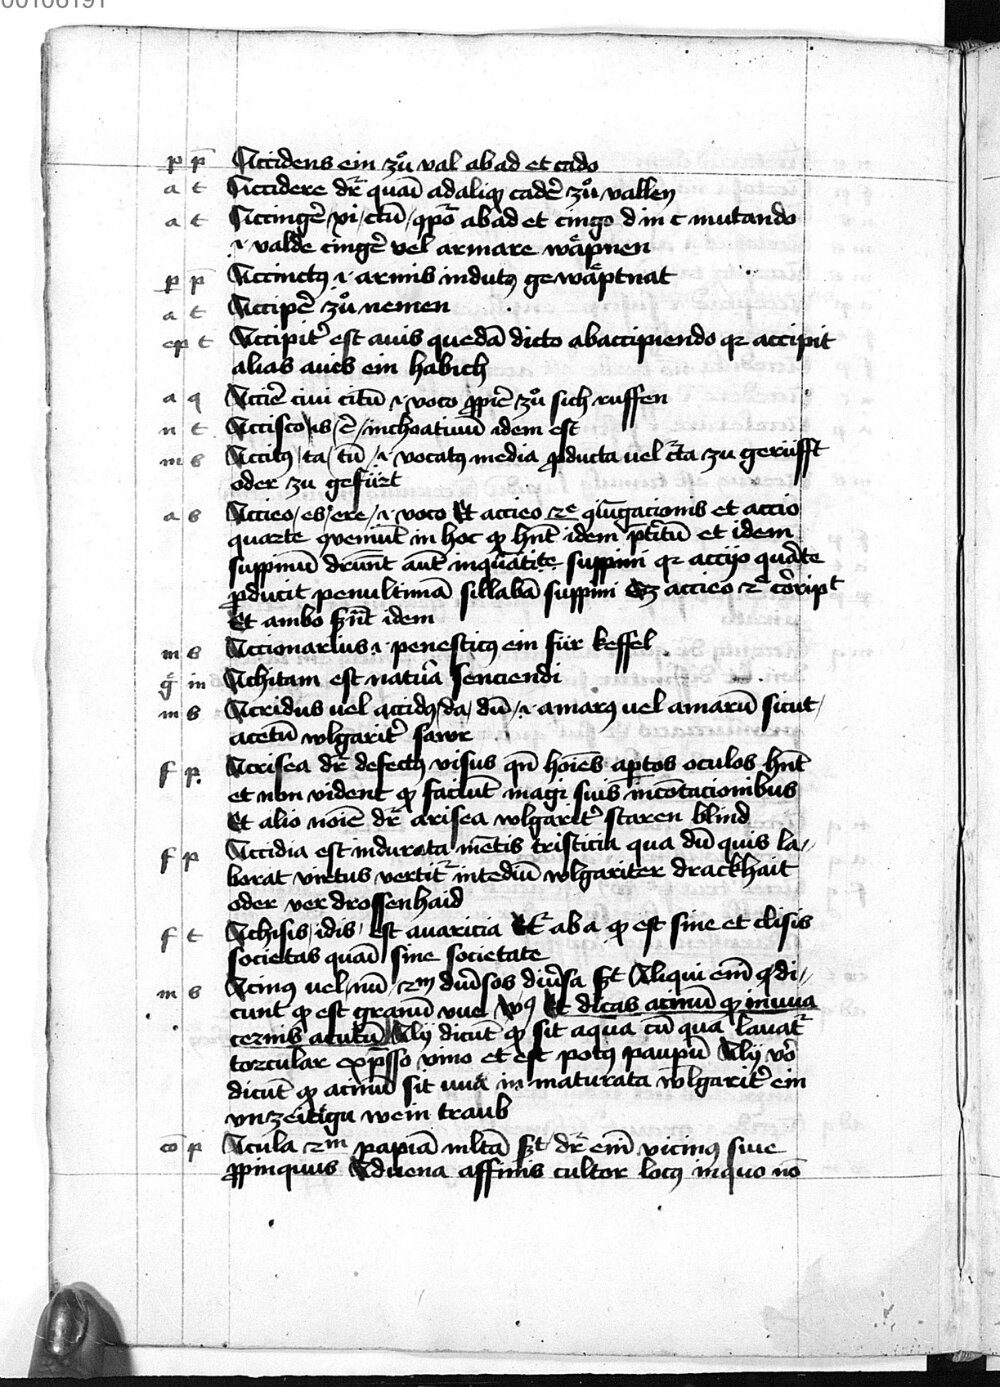 00106191
p p Accidens ein zů val ab ad et cado
a t Accidere dr̄ quāī ad aliqͥ cadē zů vallen
a t Accingē xi ctū cōpō ab ad et cingo d in c mutando
.i. valde cingē vel armare wäpnen
p p Accinctꝰ .i. armis indutꝰ gewäptnat
a t Accipē zů nemen
ep t Accipit̄ est auis quedā dicto ab accipiendo qꝛ accipit
alias aues ein habich
a q Acciē ciui citū .i. voco ꝓpē zů sich ruffen
n t Accisco is ē inchoatiuū idem est
m s Accitꝰ ta tū .i. vocatꝰ media ꝓducta uel c̄ta zu gerüfft
oder zu gefürt
a s Accieo es ere .i. voco Et accieo ꝛe ꝯiugacionis et accio
quarte ꝯueniūt in hoc ꝙ hn̄t idem p̄titū et idem
suppinū dr̄unt aūt in quātite suppini qꝛ accijo quārte
ꝓducit penultimā sillabā suppini Sꝫ accieo ꝛe cōript
Et ambo sn̄t idem
m s Accionarius .i. penesticꝰ ein für keffel
g in Achitam est natura senciendi
m s Acridus uel accidꝰ da dū .i. amarꝰ uel amarū sicut
acetū wlgarit̄ sawr
f p Acrisea dr̄ defectꝰ visus qn̄ hoīes aptos oculos hn̄t
et non vident ꝙ faciūt magi suis incantacionibus
Et alio noīe dr̄ arisea wlgarit̄ staren blind
f p Accidia est indurata mētis tristicia qua dū quis la
borat virtus vertit̄ in tediū wlgariter drackhait
oder ver drossenhaid
f t Achisis idis est auaricia Et̄ ab a ꝙ est sine et clisis
societas quāī sine societate
m s Acinꝰ uel nū ꝛm diūsos diūsa st̄ Aliqui em̄ ꝙ di
cunt ꝙ est granū vue Vꝰ Et dicas acinū ꝙ in vua
cernis acutū Alij dicūt ꝙ sit aqua cū qua lauat̄
torcular exp̄sso vino et est potꝰ paupū Alij vō
dicūt ꝙ acinū sit uua in maturata wlgarit̄ ein
vnzeitigu wein traub
cō p Acula ꝛm papiā mltā st̄ dr̄ em̄ vicinꝰ siue
ꝓpinquus Aduena affinis cultor locꝰ in quo nō